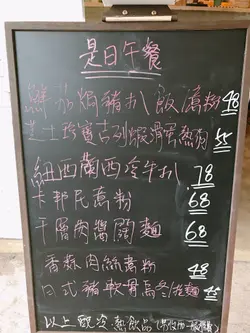 是日午餐
鮮茄焗豬扒飯/意粉 48
芝士珍寶吉列蝦滑蛋熱狗 55
紐西蘭西冷牛扒 78
卡邦尼意粉 68
千層肉醬闊麵 68
香菇肉絲意粉 48
日式豬軟骨烏冬/拉麵 45
以上配冷熱飲品